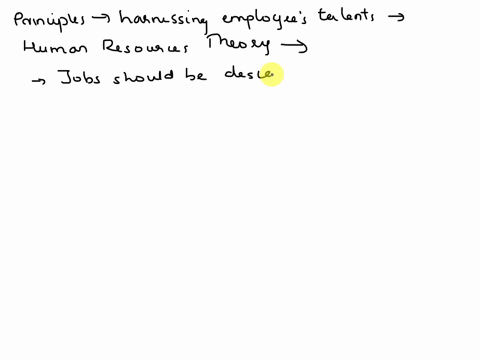 Principles → harnessing employee's talents →
Human Resources Theory →
→ Jobs should be desi